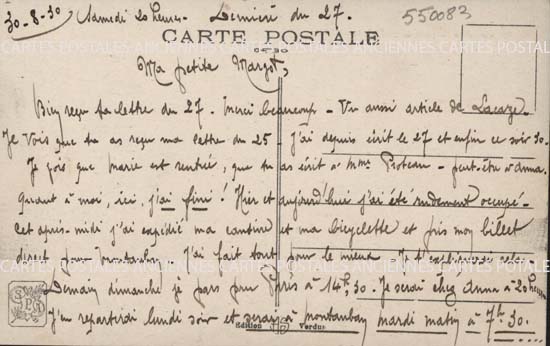 30-8-30 Samedi 20 heures - Dernière du 27. 550083
CARTE POSTALE
CARTES POSTALES ANCIENNES CARTES POSTALES ANCIENNES
Ma petite Margot,
Bien reçu ta lettre du 27. Merci beaucoup - Vu aussi article de Lacaze.
Je vois que tu as reçu ma lettre du 25 J'ai depuis écrit le 27 et enfin ce soir 30.
Je vois que Marie est rentrée, que tu as écrit à Mme - peut-être à Anna.
Quant à moi, ici, j'ai fini! Hier et aujourd'hui j'ai été rudement occupé.
Cet après-midi j'ai expédié ma cantine et ma bicyclette et pris mon billet
direct pour Montauban. J'ai fait tout pour le mieux.
Demain dimanche je pars pour Paris à 14h,30. Je serai chez Anna à 20 heures
J'en repartirai lundi soir et serai à Montauban mardi matin à 7h 30.
Edition Verdun